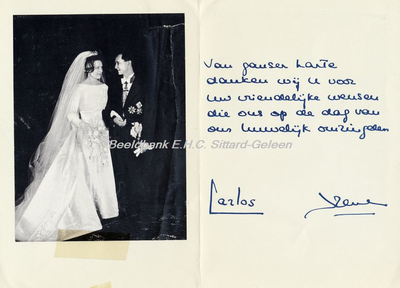 Van ganser harte
danken wij U voor
Uw vriendelijke wensen
die ons op de dag van
ons huwelijk omringden
Beeldbank E.H.C. Sittard-Geleen
Carlos Irene